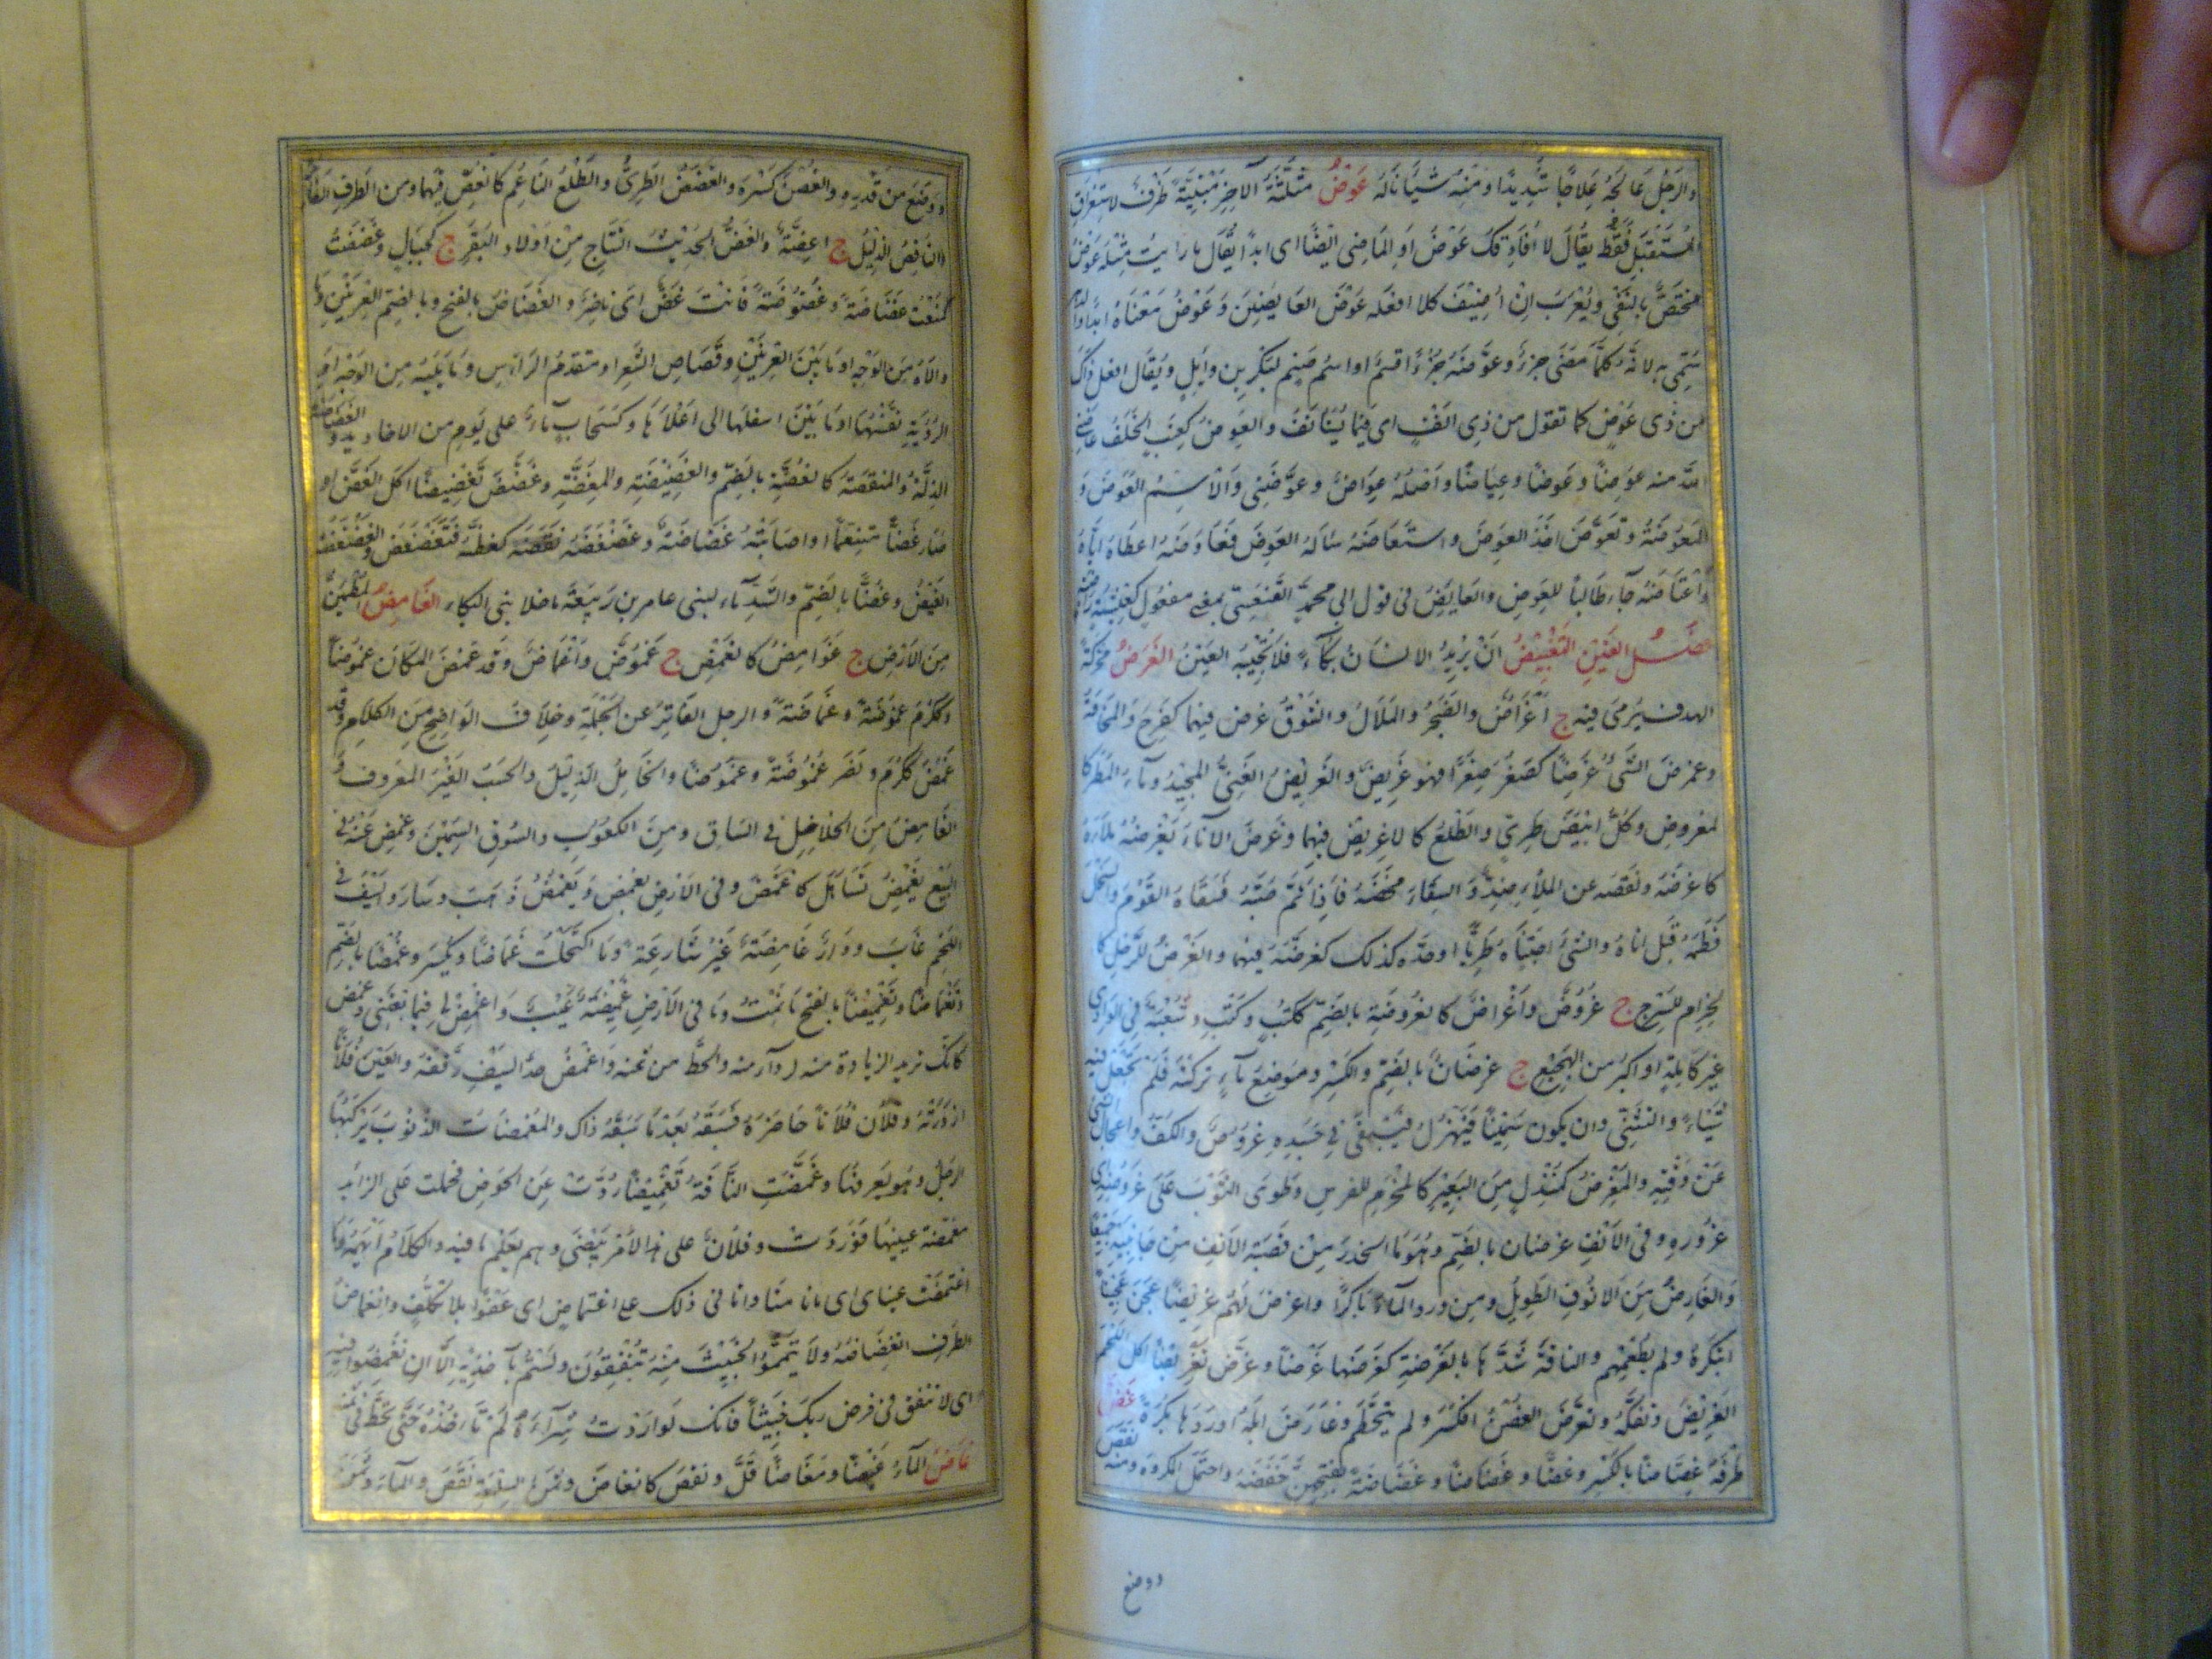 والرجل عالجه علاجا شديدا ومنه شيئا ناله عوض مثلثة الآخر مبنية ظرف لاستغراق
المستقبل فقط يقال لا أفارقك عوض أو الماضي أيضا اى ابدا يقال ما رايت مثله عوض
مختص بالنفى ويعرب ان اضيف كلا افعله عوض العايضين وعوض معناه ابدا
سمى به لانه كلما مضى جزء وعوضه جزء اقسم او اسم صنم لبكر بن وايل ويقال افعل ذاك
من ذى عوض كما تقول من ذى انف اى فيما يستانف والعوض كعنب الخلف عاضنى
الله منه عوضا وعوضا وعياضا واصله عواض وعوضنى والاسم العوض و
المعوضة وتعوض اخذ العوض واستعاضه ساله العوض فعاوضه اعطاه اياه
واعتاضه جاء طالبا للعوض والعايض فى قول ابي محمد الفقعسى بمعنى مفعول كعيشة راضية
فصل الغين التغبيض ان يريد الانسان بكاء فلا تجيبه العين الغرض محركة
الهدف يرمى فيه ج اغراض والضجر والملال والشوق غرض فيهما كفرح والمخافة
وغرض الشئ غرضا كصغر صغرا فهو غريض والغريض المغنى المجيد وماء المطر كا
لمغروض وكل ابيض طرى والطلع كالاغريض فيهما وغرض الاناء يغرضه ملاه
كاغرضه ونقصه عن الملء ضد والسقاء مخضه فاذا ثمر صبه فسقاه القوم والسخل
فطمه قبل اناه والشئ اجتناه طريا او خذه كذلك كغرضه فيهما والغرض للرحل كا
لحزام للسرج ج غروض واغراض كالغرضة بالضم ككتب وكتب وشعبة فى الوادى
غير كاملة او اكبر من الهجيج ج غرضان بالضم والكسر وموضع ماء تركته فلم تجعل فيه
شيئا والتثنى وان يكون سمينا فيهزل فيبقى فى جسده غروض والكف واعجال الشئ
عن وقته والمغرض كمنزل من البعير كالمحزم للفرس وطوى الثوب على غروضه اى
غروره وفى الانف غرضان بالضم وهو ما انحدر من قصبة الانف من جانبيه جميعا
والغارض من الانوف الطويل ومن ورد الماء باكرا واغرض لهم غريضا عجن عجينا
ابتكره ولم يطعمهم والناقة شدها بالغرضة كغرضها غرضا وغرض تغريضا اكل اللحم
الغريض وتفكه وتغرض الغصن انكسر ولم يتحطم وغارض ابله اوردها بكرة غض
طرفه غضاضا بالكسر وغضا وغضاضا وغضاضة بفتحهن خفضه واحتمل المكروه ومنه نقص
ووضع
ووضع من قدره والغصن كسره والغضض الطرى والطلع الناعم كالغض فيهما ومن الطرف الفاتر
الناقص الذليل ج اغضة والغض الحديث النتاج من اولاد البقر ج كجبال وغضضت
كمنعت غضاضة وغضوضة فانت غض اى ناضر والغضاض بالفتح وبالضم العرنين وما
والاه من الوجه او ما بين العرنين وقصاص الشعر او مقدم الراس وما يليه من الوجه او
الروثة نفسها او ما بين اسفلها الى اعلاها وكسحاب ماء على يوم من الاخاديد والغضاضة
الذلة والمنقصة كالغضة بالضم والغضيضة والمغضة وغضض تغضيضا اكل الغض او
صار غضا متنعما او اصابته غضاضة وغضغضه نقصه كغضه فتغضغض والغضغضة
الغيض وغضا بالضم والتشديد ماء لبنى عامر بن ربيعة ما خلا بنى البكاء الغامض المطمئن
من الارض ج غوامض كالغمض ج غموض واغماض وقد غمض المكان غموضا
وككرم غموضة وغماضة والرجل الفاتر عن الحملة وخلاف الواضح من الكلام وقد
غمض ككرم ونصر غموضة وغموضا والخامل الذليل والحسب الغير المعروف و
الغامض من الخلاخل فى الساق ومن الكعوب والسوق السمين وغمض عنه فى
البيع يغمض تساهل كاغمض وفى الارض يغمض ويغمض ذهب وسار والسيف فى
اللحم غاب ودار غامضة غير شارعة وما اكتحلت غماضا ويكسر وغمضا بالضم
وتغماضا وتغميضا بالفتح ما نمت وما فى الارض غميضة عيب واغمض لى فيما بعتنى وغمض
كانك تريد الزيادة منه لرداءته والحط من ثمنه واغمض حد السيف رققه والعين فلانا
ازدرته وفلان فلانا حاضره فسبقه بعدما سبقه ذاك والمغمضات الذنوب يركبها
الرجل وهو يعرفها وغمضت الناقة تغميضا ردت عن الحوض فحملت على الزائد
مغمضة عينيها فوردت وفلان على هذا الامر مضى وهو يعلم ما فيه والكلام ابهمه وما
اغتمضت عيناى اى ما نامتا واتانى ذلك على اغتماض اى عفوا بلا تكلف وانغماض
الطرف انغضاضه ولا تيمموا الخبيث منه تنفقون ولستم بآخذيه الا ان تغمضوا فيه
اى لا تنفق فى قرض ربك خبيثا فانك لو اردت شراءه لم تاخذه حتى تحط فى ثمنه
غاض الماء غيضا ومغاضا قل ونقص كانغاض وثمن السلعة نقص والماء وثمن